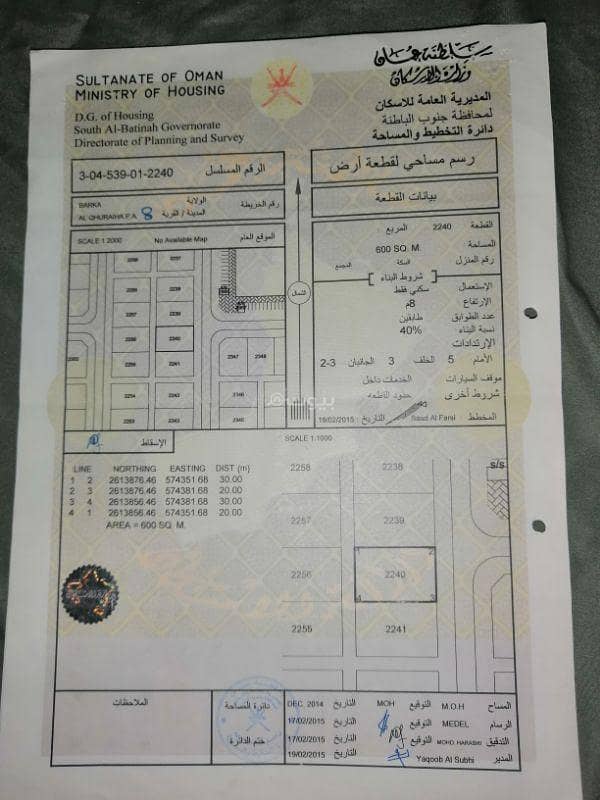 SULTANATE OF OMAN
MINISTRY OF HOUSING
D.G. of Housing
South Al-Batinah Governorate
Directorate of Planning and Survey
سلطنة عمان
وزارة الإسكان
المديرية العامة للاسكان
لمحافظة جنوب الباطنة
دائرة التخطيط والمساحة
3-04-539-01-2240 الرقم المسلسل
رسم مساحي لقطعة أرض
BARKA الولاية
AL GHURAIHA P.A. المدينة / القرية 8 رقم الخريطة
بيانات القطعة
SCALE 1:2000 No Available Map الموقع العام
القطعة 2240 المربع
المساحة 600 SQ. M.
رقم المنزل السكة المجمع
شروط البناء
الإستعمال سكني فقط
الإرتفاع 8م
عدد الطوابق طابقين
نسبة البناء 40%
الإرتدادات
الأمام 5 الخلف 3 الجانبان 3-2
موقف السيارات الخدمات داخل
شروط أخرى حدود القطعه
المخطط Saud Al Farsi التاريخ 19/02/2015
الشمال
2257
2239
2240
2241
2347
2348
2254
2242
2243
بيوت
الإسقاط
SCALE 1:1000
LINE NORTHING EASTING DIST (m)
1 2 2613876.46 574351.68 30.00
2 3 2613876.46 574381.68 20.00
3 4 2613856.46 574381.68 30.00
4 1 2613856.46 574351.68 20.00
AREA = 600 SQ. M.
2258 2238 s/s
2257 2239
1 2
2256 2240
4 3
2255 2241
الملاحظات
دائرة المساحة
ختم الدائرة
المساح M.O.H التوقيع MOH التاريخ DEC. 2014
الرسام MEDEL التوقيع التاريخ 17/02/2015
التدقيق MOHD. HARASSI التوقيع التاريخ 17/02/2015
المدير Yaqoob Al Subhi التاريخ 19/02/2015